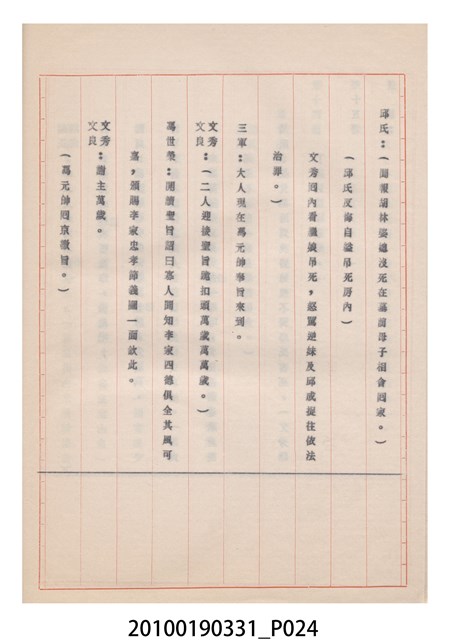 邱氏：（聞報胡林英總沒死在墓前母子相會回家。）
（邱氏反悔自縊吊死房內）
文秀回內看義娘吊死，怒罵逆妹及邱成捉往依法
治罪。）
三軍：大人現在馬元帥奉旨來到。
文秀
文良：（二人迎接聖旨跪扣頭萬歲萬萬歲。）
馬世榮：開讀聖旨詔曰寡人聞知李家四德俱全其風可
嘉，頒賜李家忠孝節義匾一面欽此。
文秀
文良：謝主萬歲。
（馬元帥回京覆旨。）
20100190331_P024